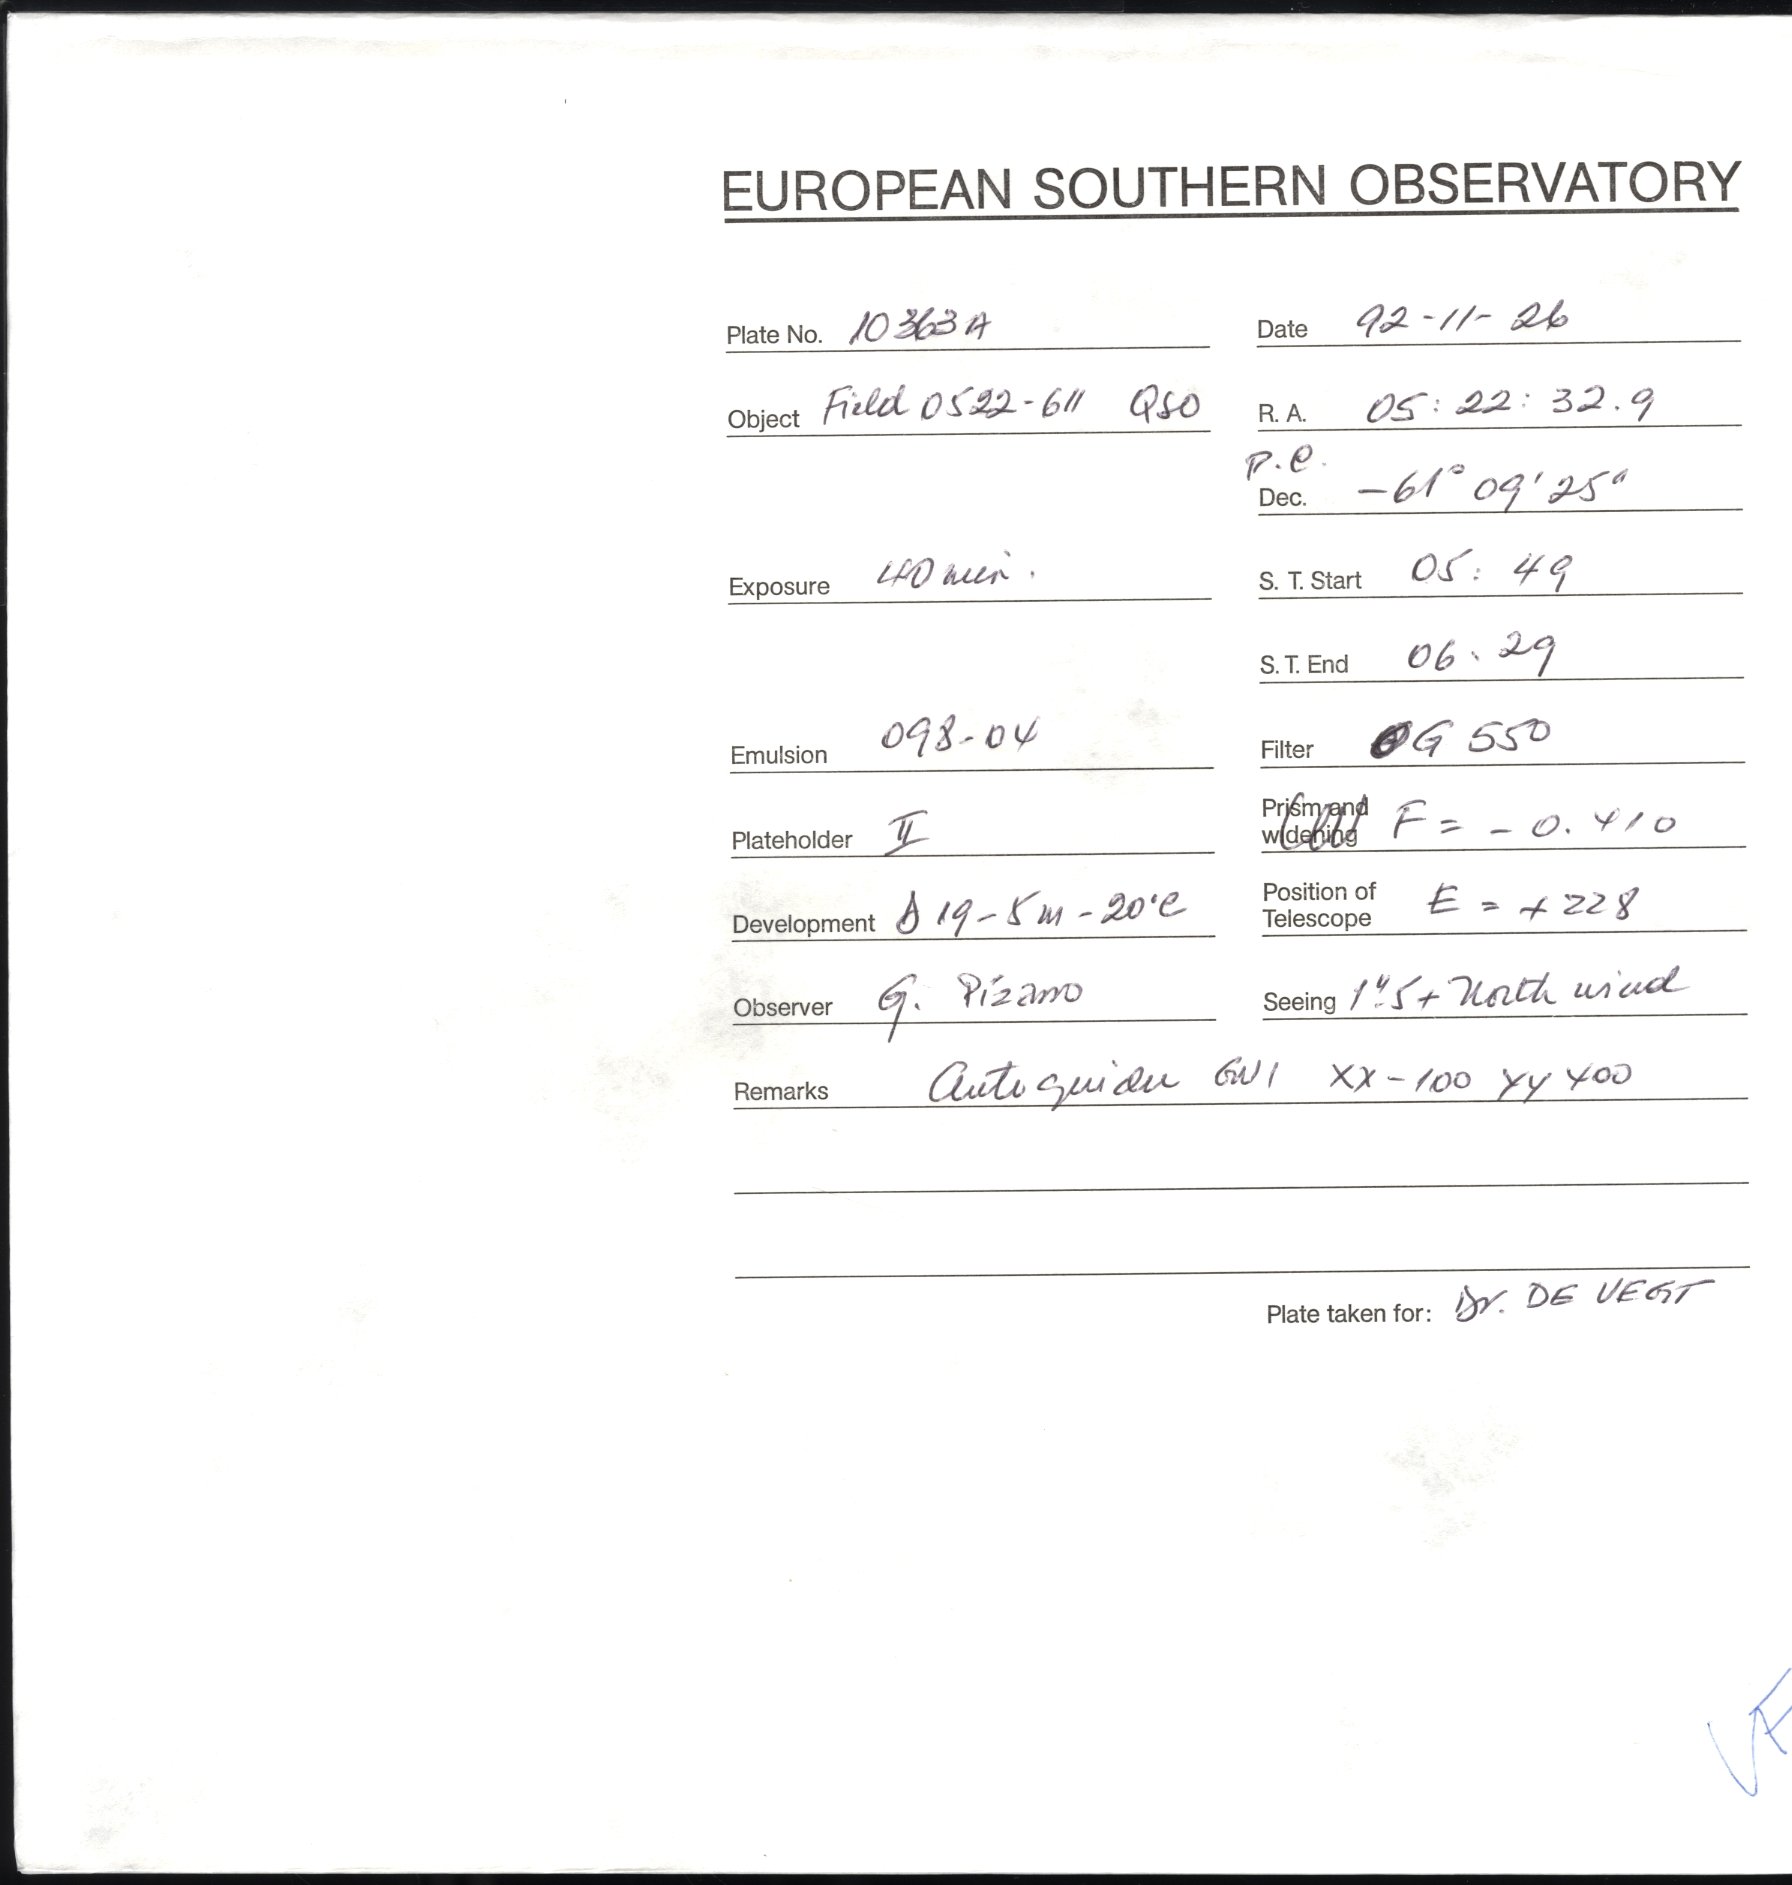 EUROPEAN SOUTHERN OBSERVATORY
Plate No. 10363A Date 92-11-26
Object Field 0522-611 QSO R. A. 05:22:32.9
P.C.
Dec. -61° 09' 25"
Exposure 40 min. S. T. Start 05:49
S. T. End 06:29
Emulsion 098-04 Filter OG 550
Plateholder II Prism and widening F = -0.410
Development D19-5m-20°C Position of Telescope E = +228
Observer G. Pizarro Seeing 1".5+ North wind
Remarks Autoguider GW1 XX-100 YY 400
Plate taken for: Dr. DE VEGT